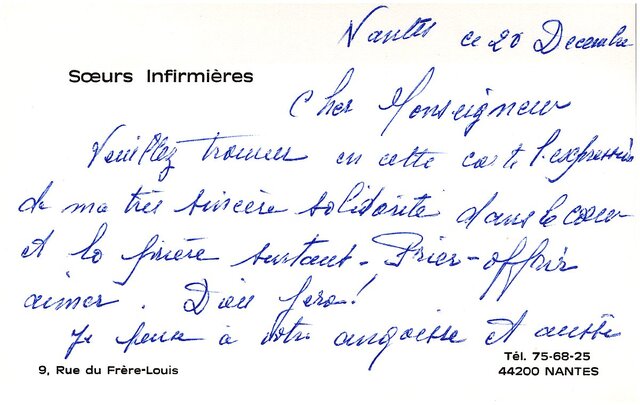 Nantes ce 20 Decembre
Sœurs Infirmières
Cher Monseigneur
Veuillez trouver en cette carte l'expression
de ma très sincère solidarité dans le cœur
et la prière surtout - Prier - offrir
aimer . Dieu fera !
Je pense à votre angoisse et aussi
9, Rue du Frère-Louis
Tél. 75-68-25
44200 NANTES